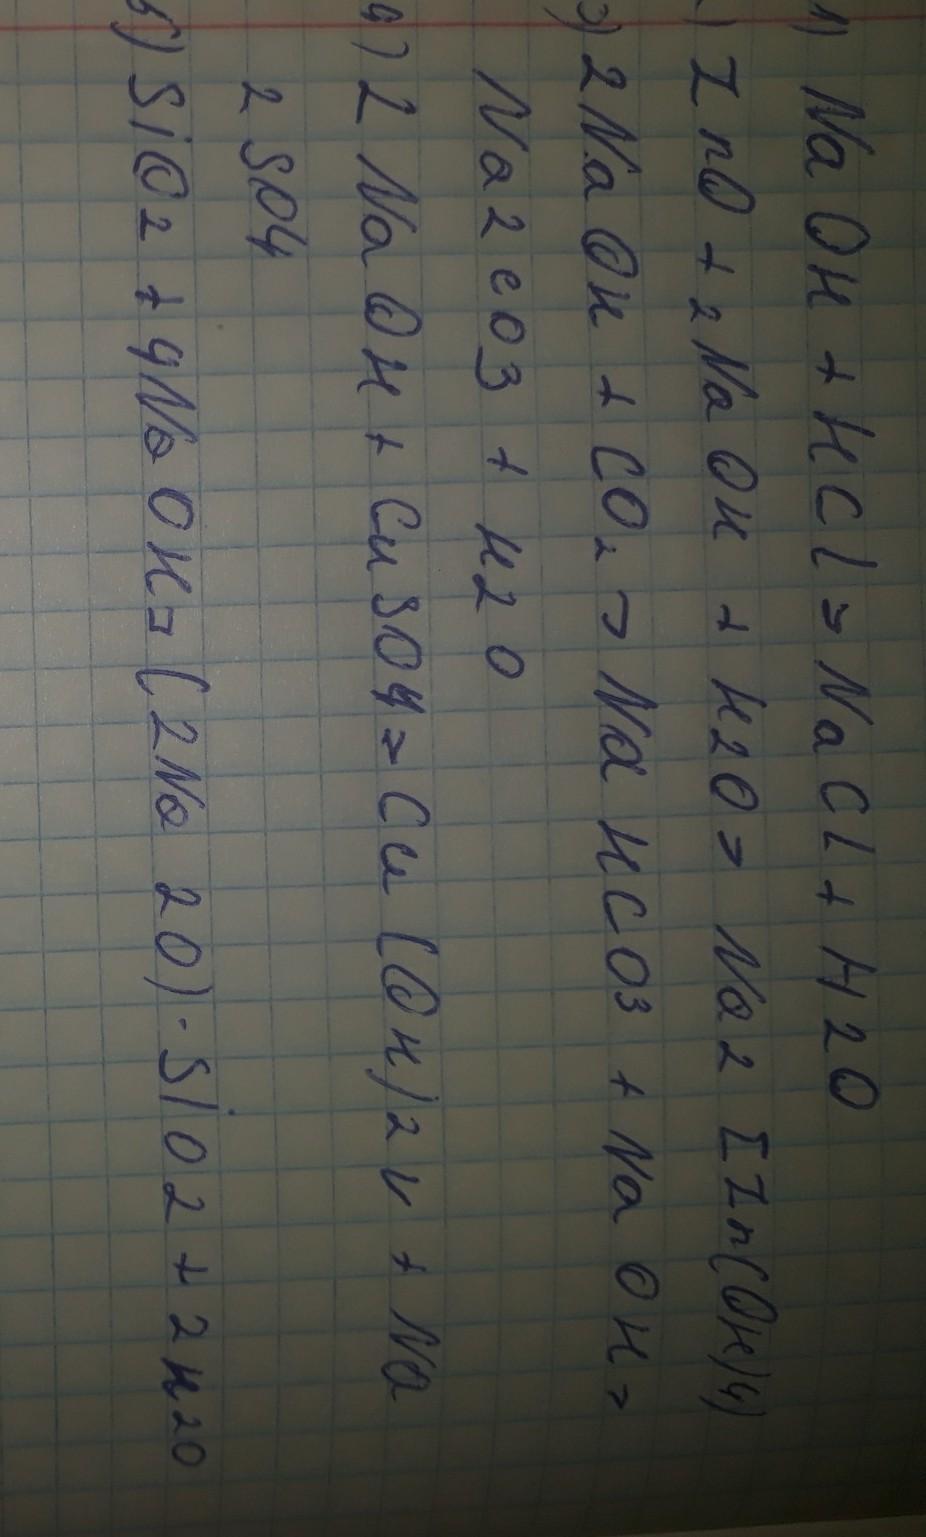 1) NaOH + HCl = NaCl + H2O
2) ZnO + 2NaOH + H2O = Na2[Zn(OH)4)
3) 2NaOH + CO2 = NaHCO3 + NaOH =
Na2CO3 + H2O
4) 2NaOH + CuSO4 = Cu(OH)2↓ + Na
2SO4
5) SiO2 + 4NaOH = (2Na2O)·SiO2 + 2H2O